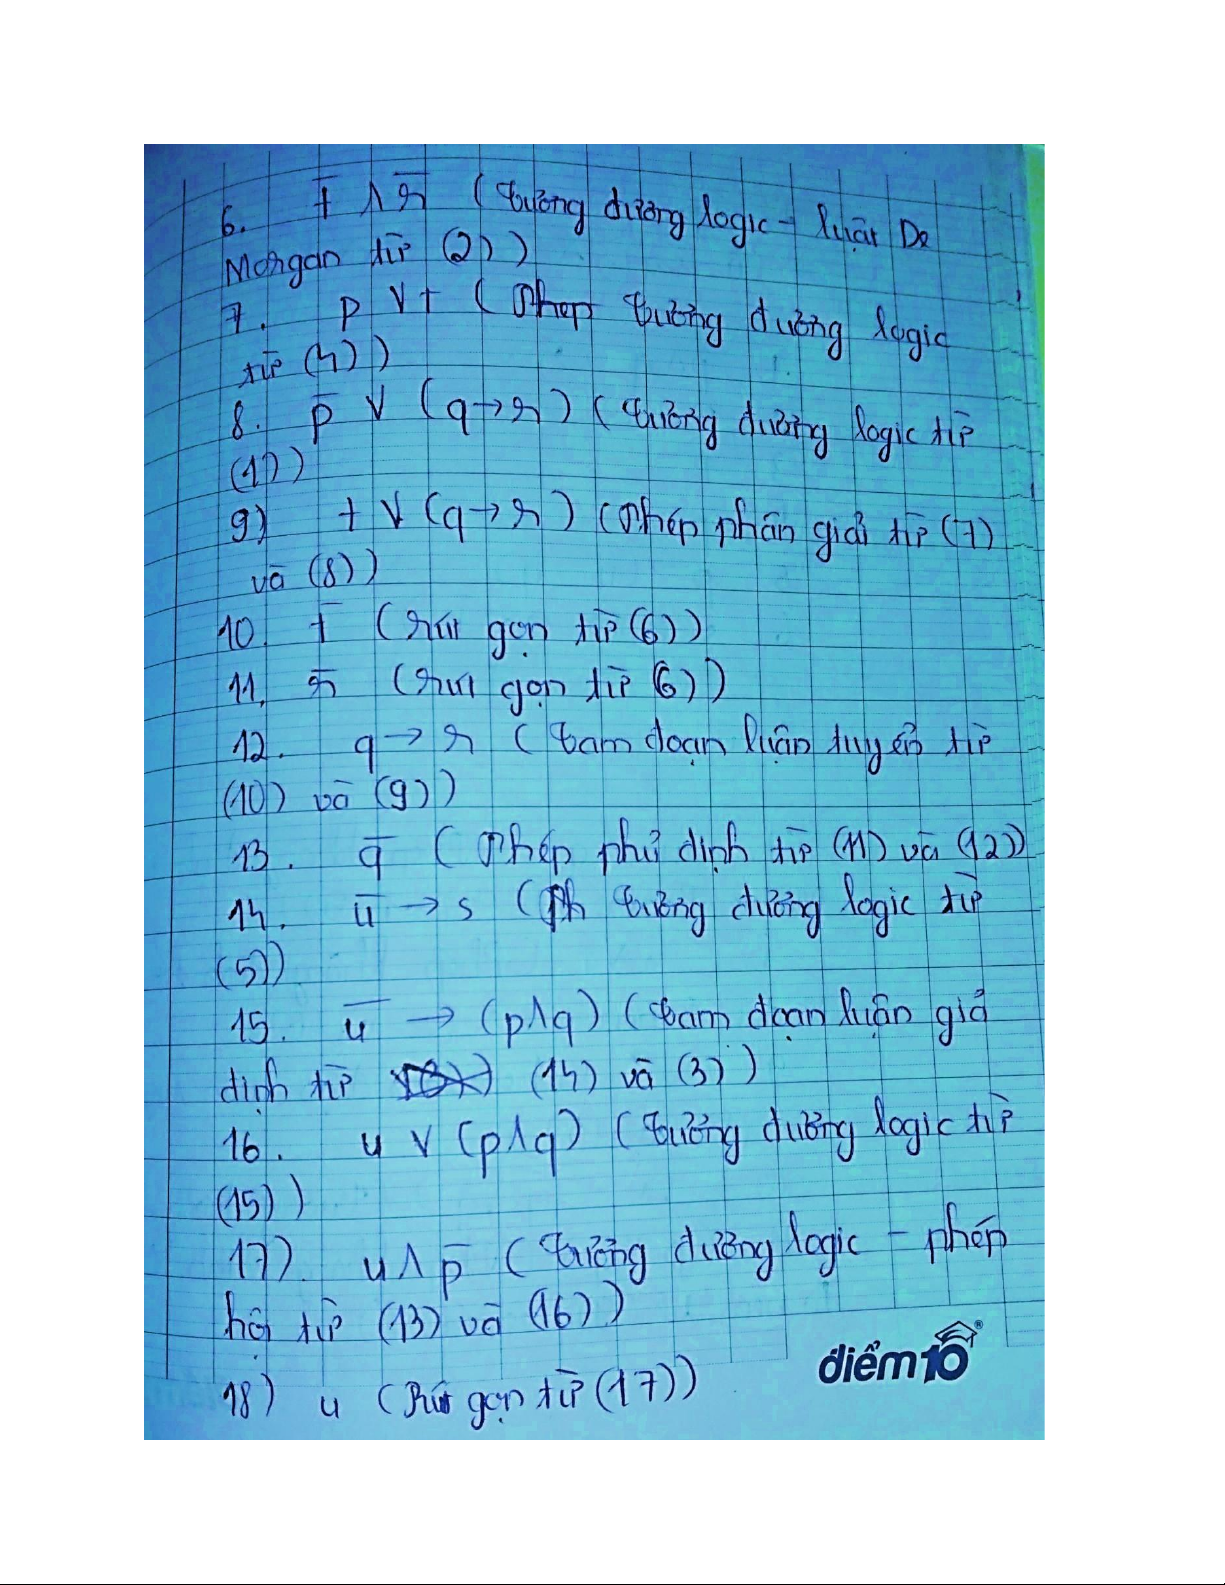 6. t̄ ∧ r̄ (tương đương logic - luật De
Morgan từ (2))
7. p ∨ t (Phép tương đương logic
từ (4))
8. p̄ ∨ (q → r) (tương đương logic từ
(1))
9) t ∨ (q → r) (Phép phân giải từ (7)
và (8))
10. t̄ (rút gọn từ (6))
11. r̄ (rút gọn từ (6))
12. q → r (tam đoạn luận tuyển từ
(10) và (9))
13. q̄ (Phép phủ định từ (11) và (12))
14. ū → s (tương đương logic từ
(5))
15. ū → (p ∧ q) (tam đoạn luận giả
định từ (14) và (3))
16. u ∨ (p ∧ q) (tương đương logic từ
(15))
17). u ∧ p̄ (tương đương logic - phép
hội từ (13) và (16))
18) u (Rút gọn từ (17))
điểm10®